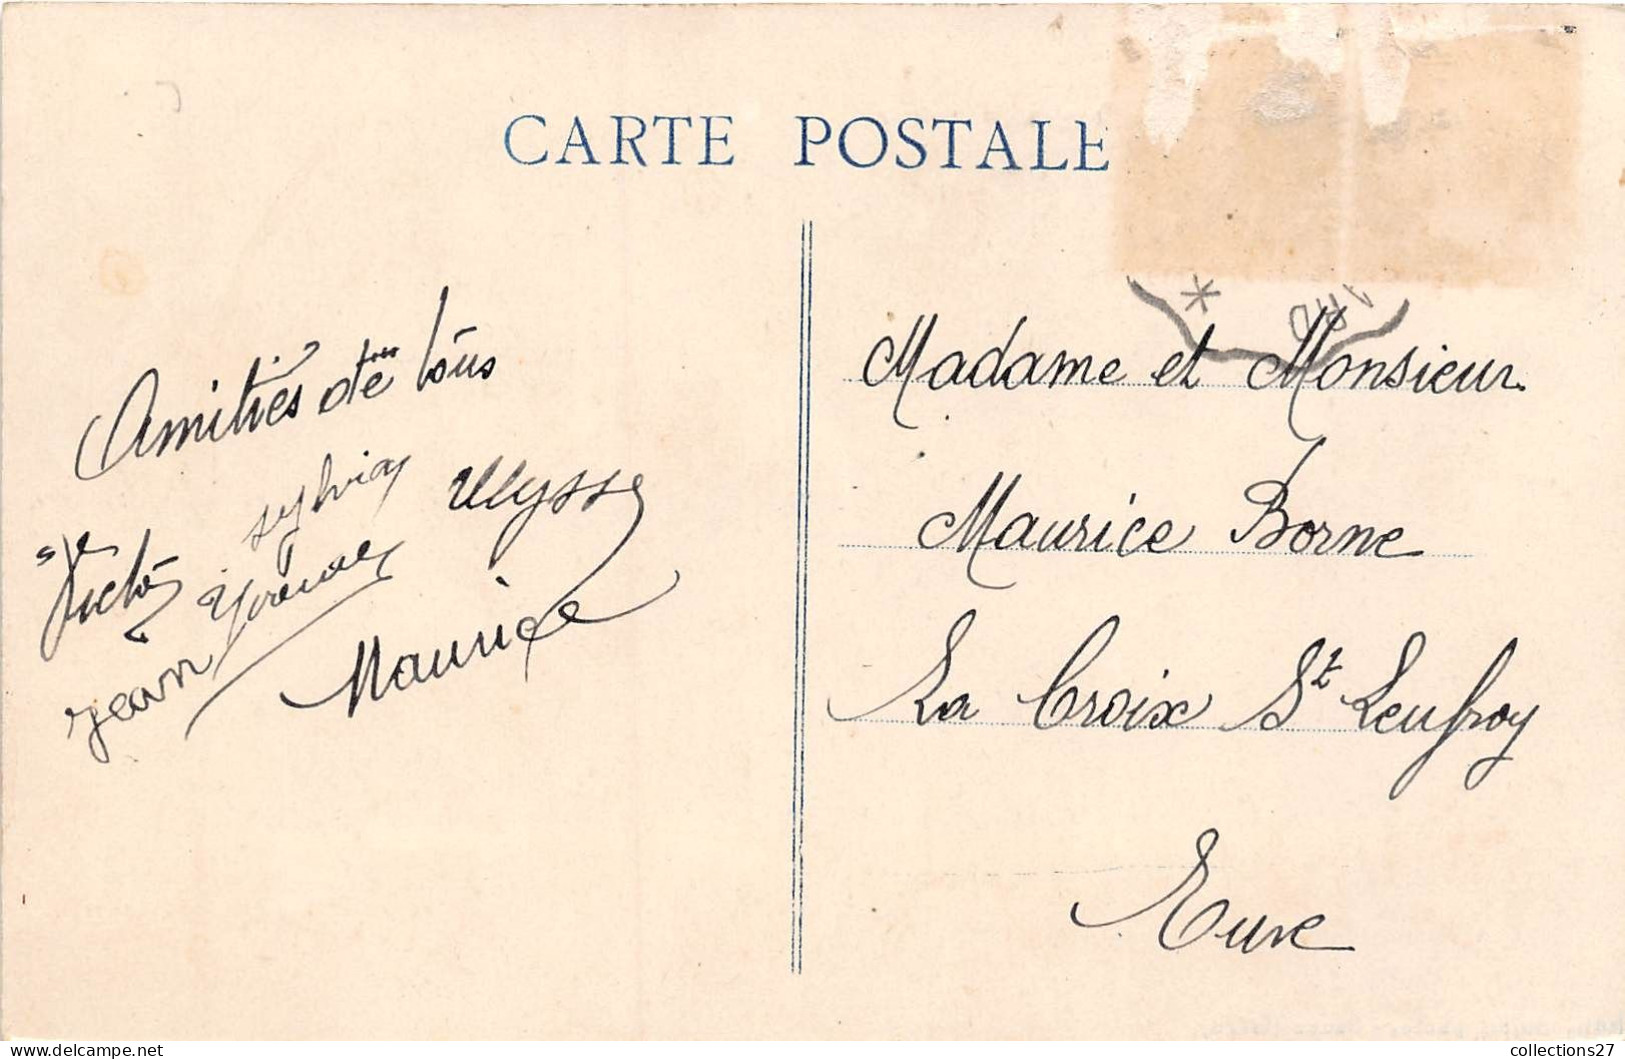 CARTE POSTALE
Amitiés de tous
Sylvia Ulysse
Victor Yrénée
Jean Maurice
Madame et Monsieur
Maurice Borne
La Croix St Leufroy
Eure
collections27